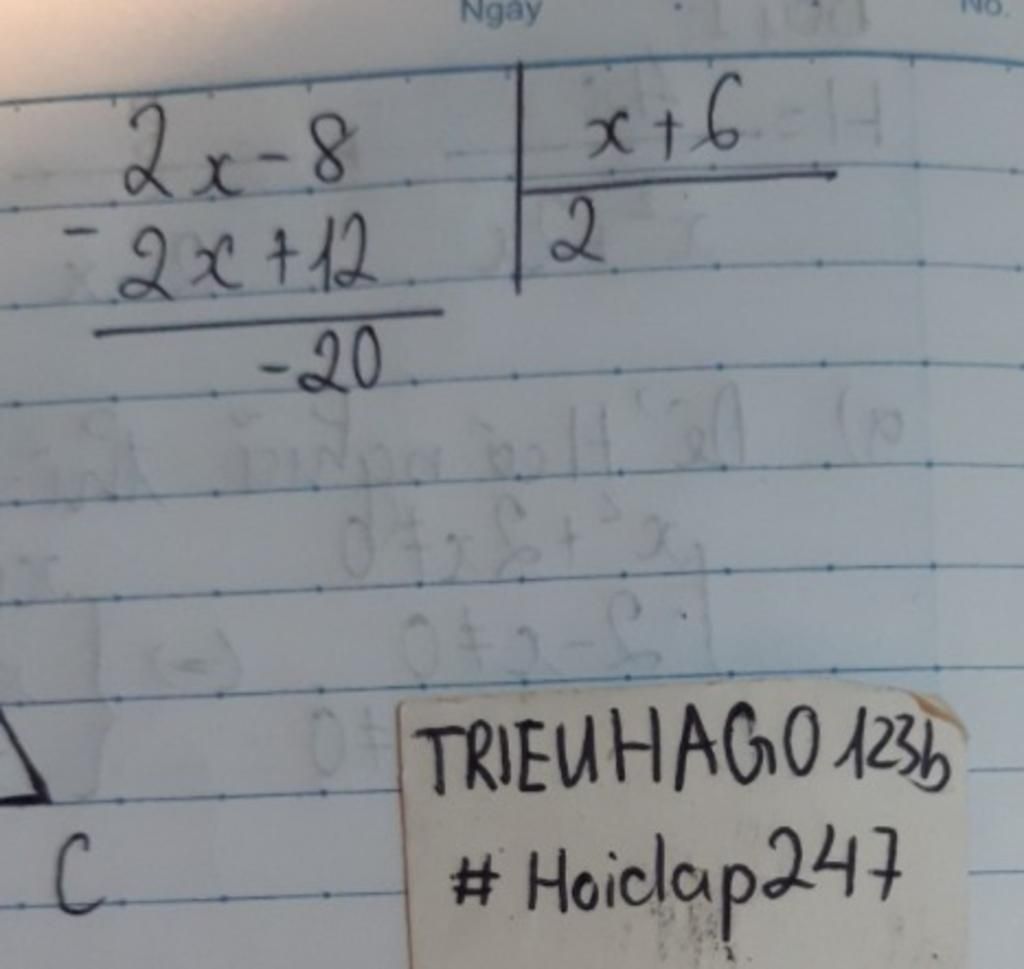 Ngày No.
2x - 8 x + 6
- 2x + 12 2
-20
C
TRIEUHAGO123b
# Hoidap247